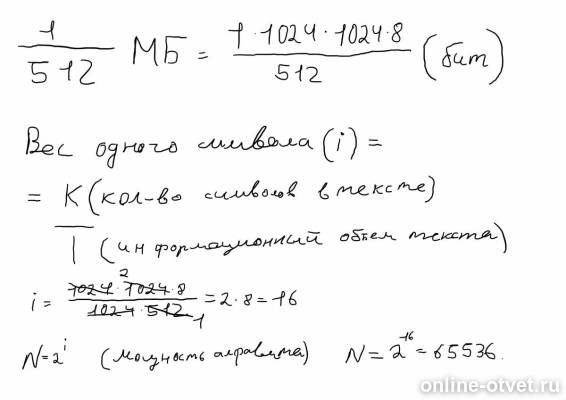 1/512 МБ = 1·1024·1024·8/512 (бит)
Вес одного символа (i) =
= K (кол-во символов в тексте)
I (информационный объем текста)
i = 1024·1024·8/1024·512 = 2·8 = 16
2 1
N=2^i (мощность алфавита) N=2^16=65536.
online-otvet.ru